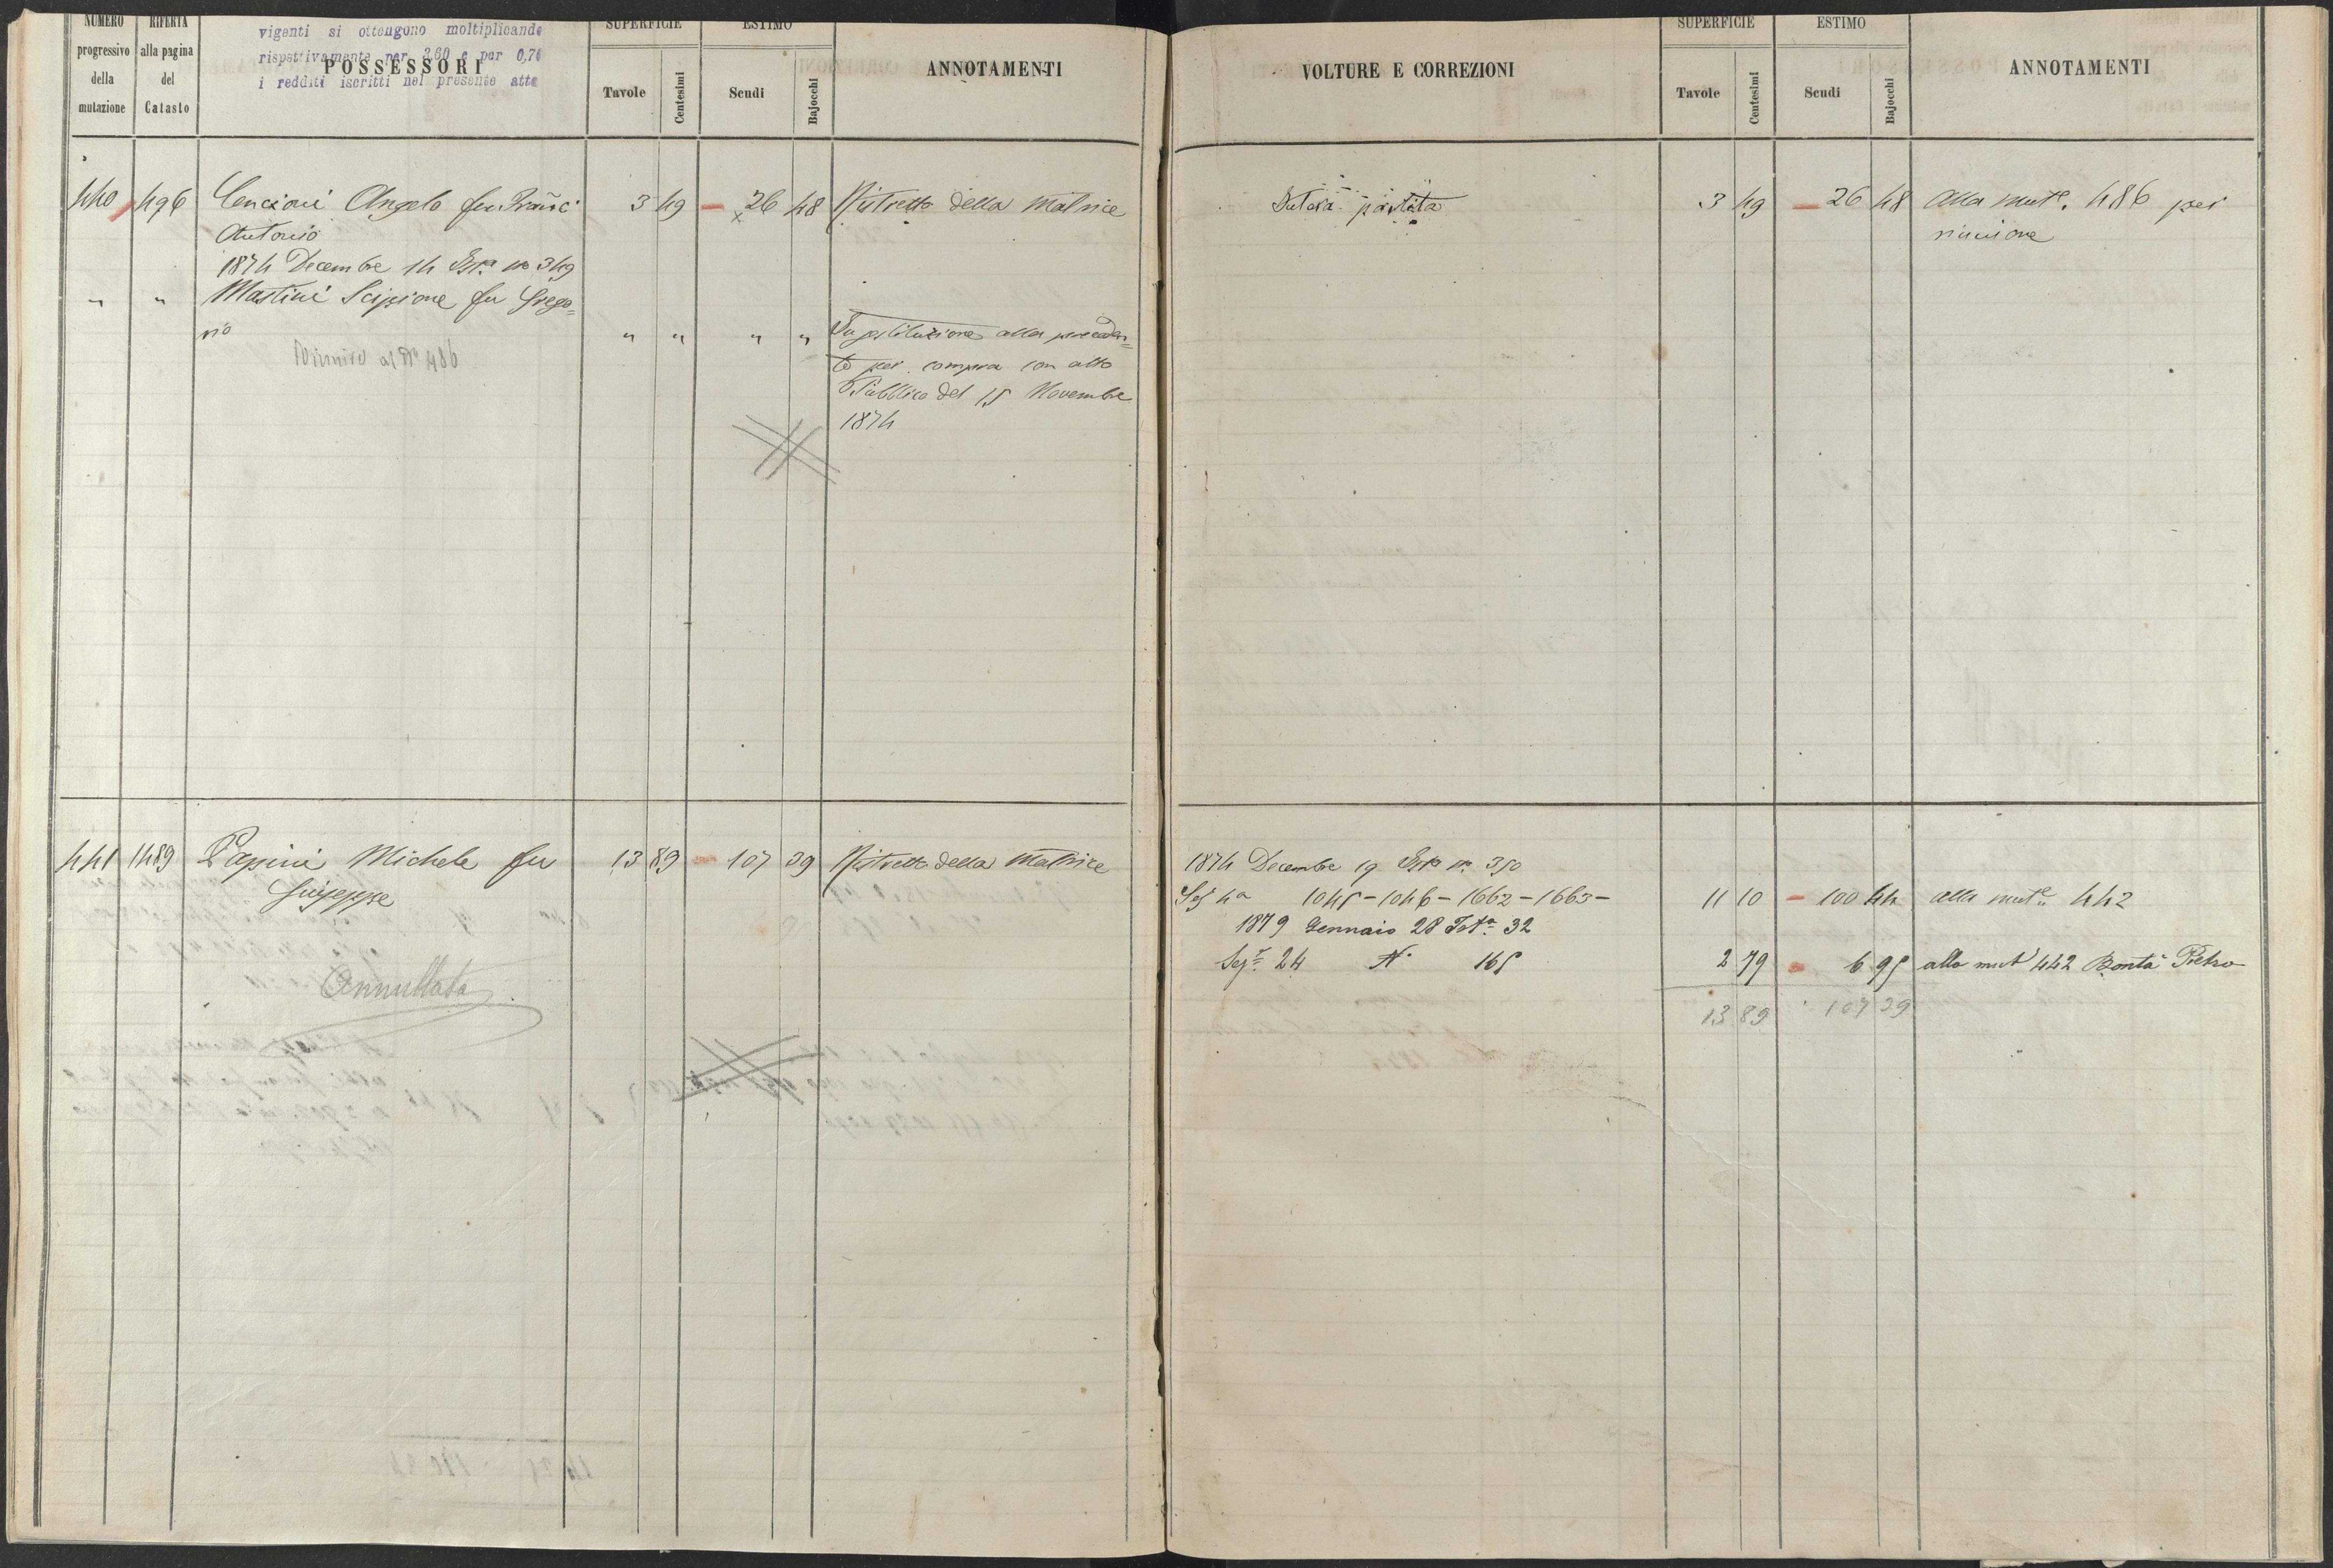 NUMERO
progressivo
della
mutazione
RIFERTA
alla pagina
del
Catasto
vigenti si ottengono moltiplicando
rispettivamente per 3,60 e per 0,76
i redditi iscritti nel presente atto
POSSESSORI
SUPERFICIE
Tavole
Centesimi
ESTIMO
Scudi
Bajocchi
ANNOTAMENTI
440 496 Cencioni Angelo fu Franc. 3 49 26 48 Ristretto della Matrice
Antonio
1874 Decembre 14 Ista no 349
" " Mastini Scipione fu Grego=
rio " " " " In sostituzione alla preceden=
Riunire al No 486 te per compra con atto
Pubblico del 15 Novembre
1874
441 1489 Papini Michele fu 13 89 107 39 Ristretto della Matrice
Giuseppe
Annullata
VOLTURE E CORREZIONI
SUPERFICIE
Tavole
Centesimi
ESTIMO
Scudi
Bajocchi
ANNOTAMENTI
Intera partita 3 49 26 48 Alla mute. 486 per
riunione
1874 Decembre 19 Ista no. 350
Sez 4a 1045-1046-1662-1663- 11 10 100 44 alla mute. 442
1879 Gennaio 28 Ista. 32
Sez. 24 No 165 2 79 6 95 alla mut 442 Bontà Pietro
13 89 107 39